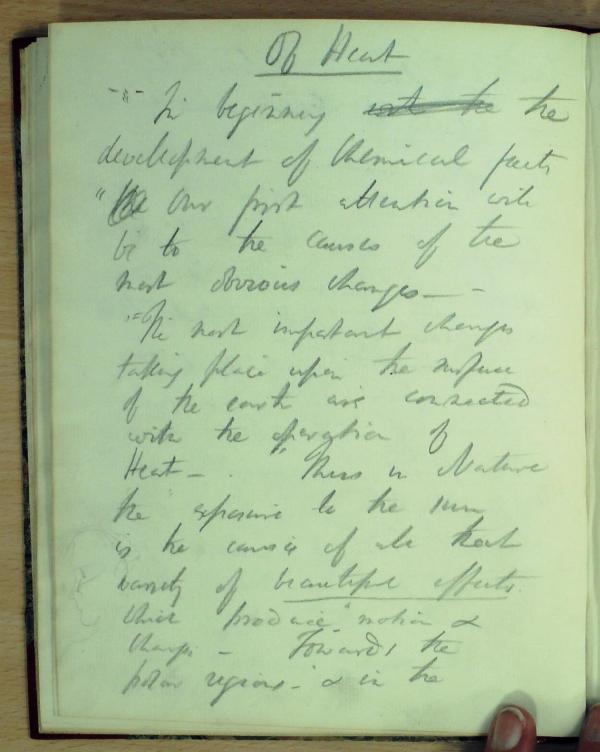 Of Heat
In beginning with the the
development of Chemical facts
"The Our first attention will
be to the causes of the
most obvious changes — -
"The most important changes
taking place upon the surface
of the earth are connected
with the operation of
Heat - . Thus in Nature
the exposure to the sun
is the cause of all that
variety of beautiful effects
which produce motion &
change - Towards the
polar regions - & in the